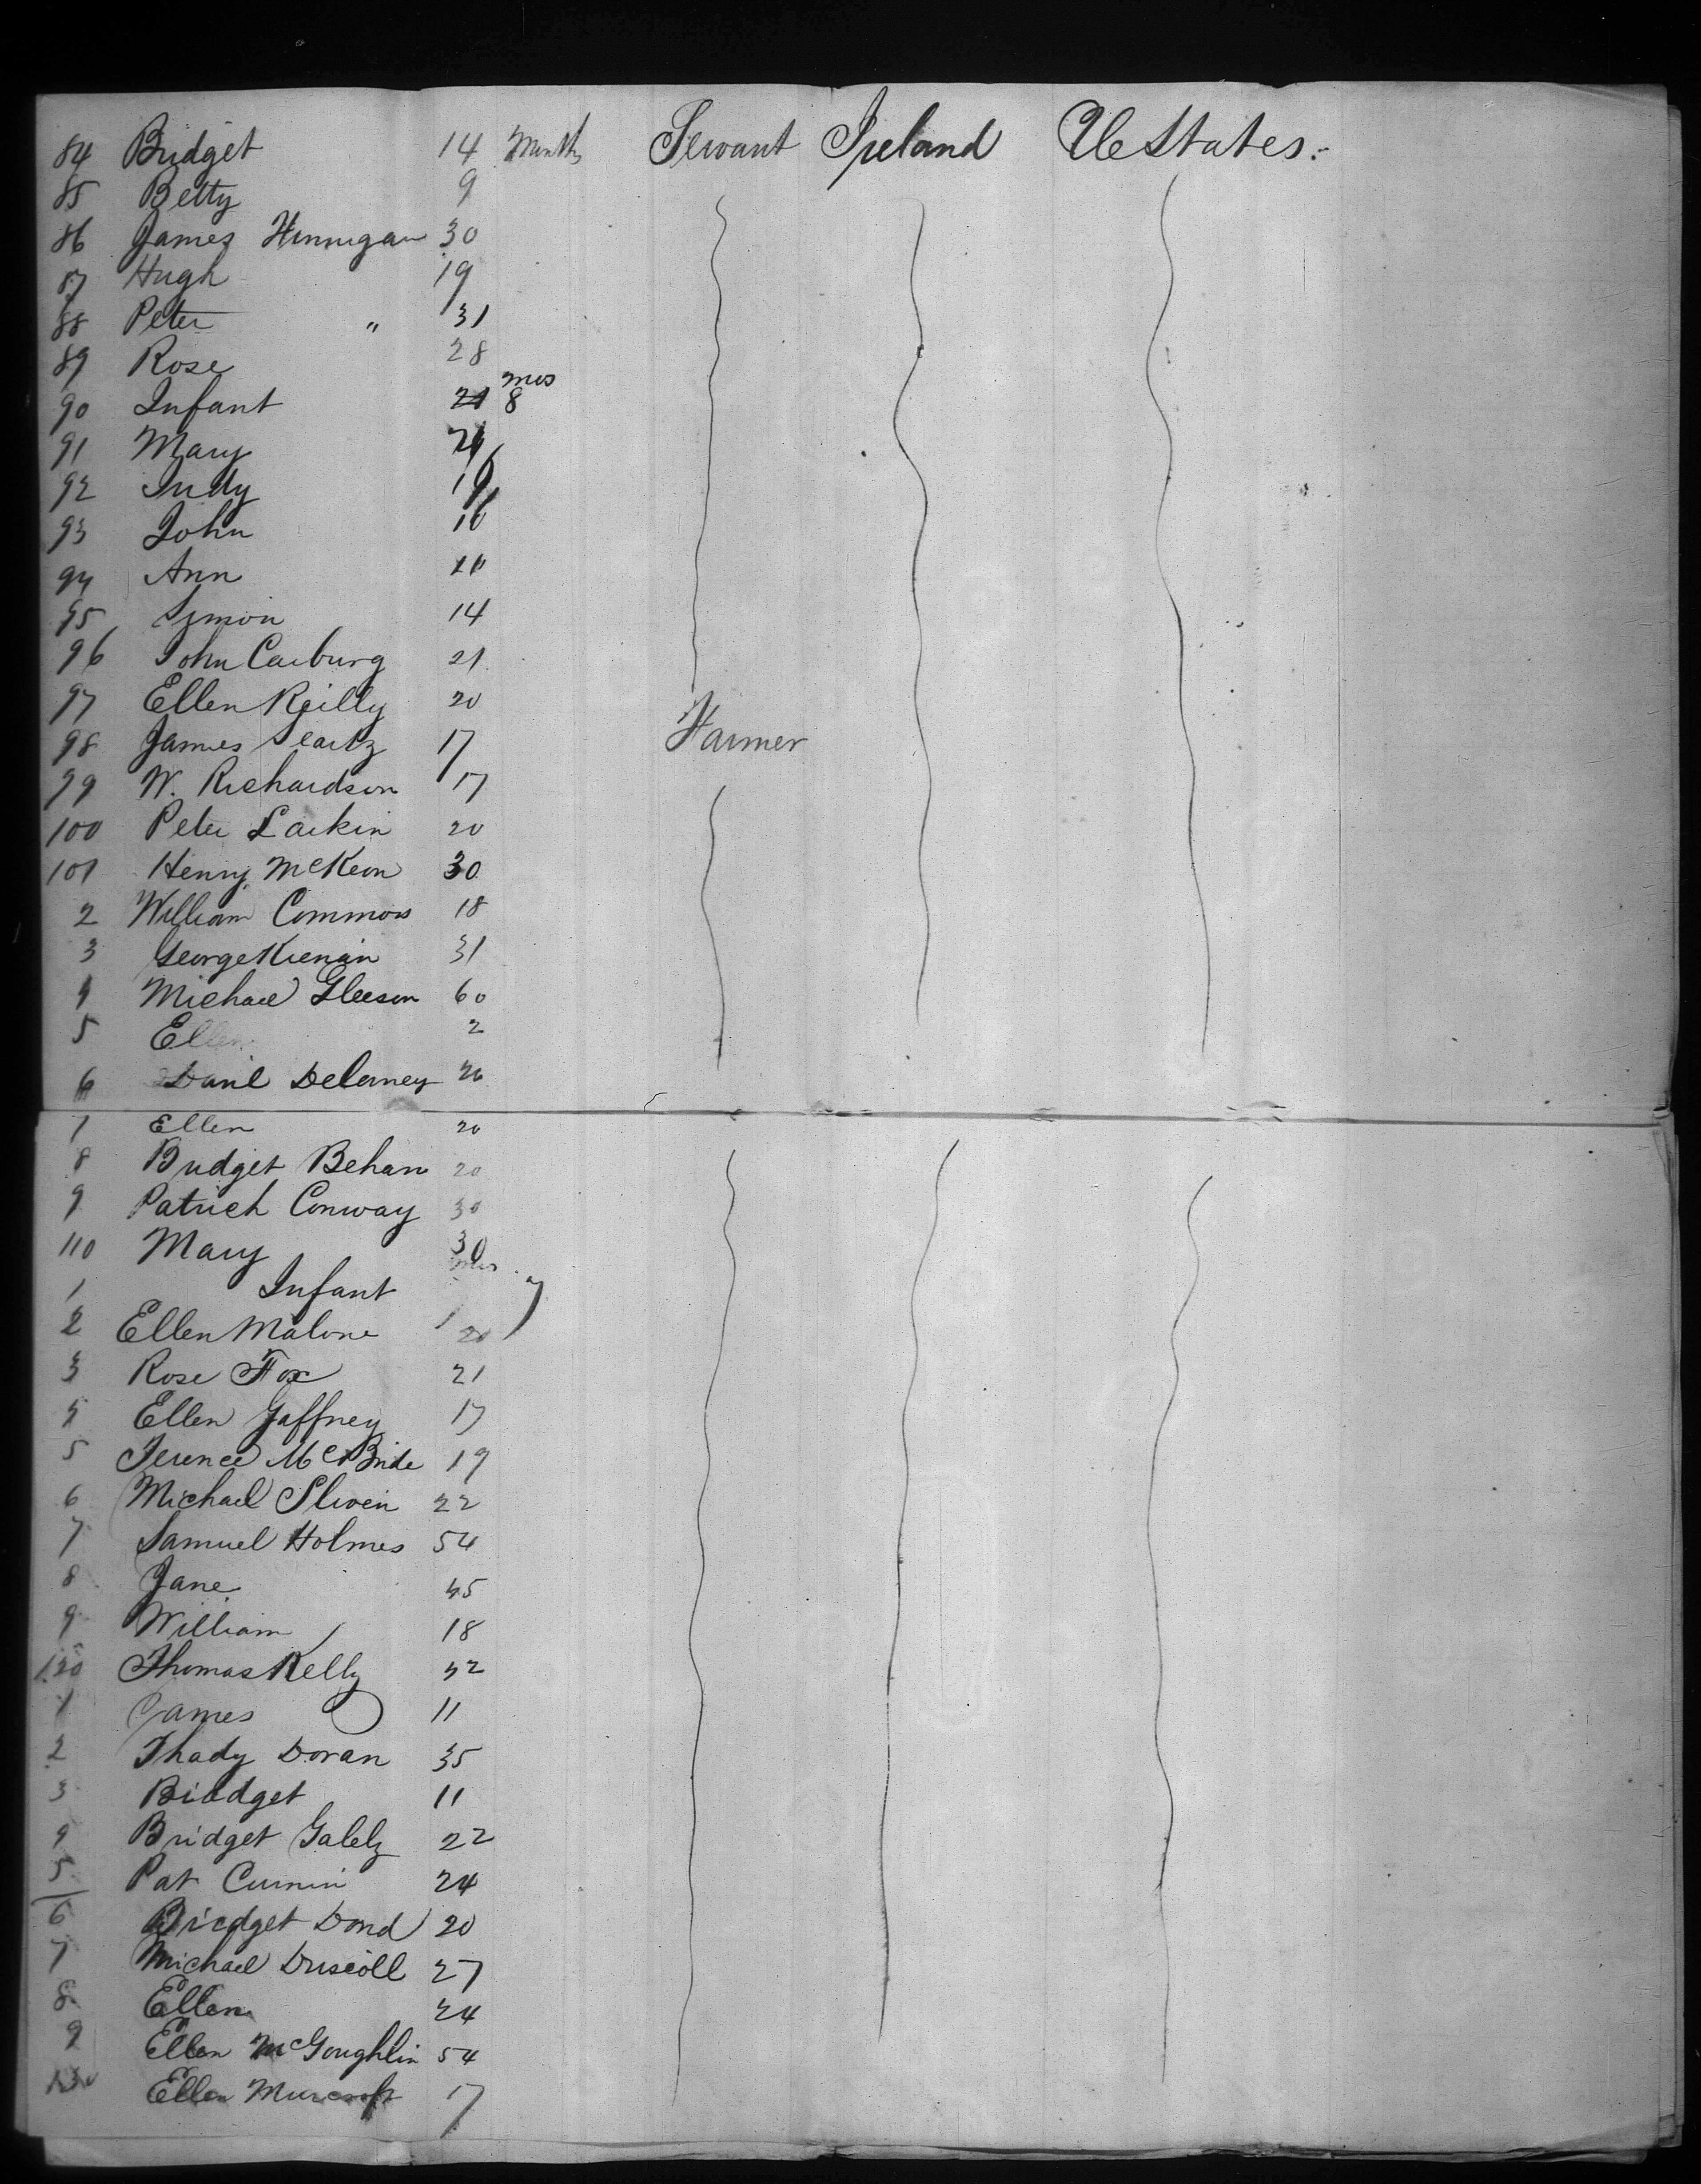 84 Bridget 14 Months Servant Ireland U States.
85 Betty 9
86 James Hennigan 30
87 Hugh 19
88 Peter " 31
89 Rose 28
90 Infant mos 8
91 Mary
92 Judy
93 John
94 Ann
95 Simon 14
96 John Carburg 21
97 Ellen Reilly 20
98 James 17 Farmer
99 W. Richardson 17
100 Peter Larkin 20
101 Henry McKeon 30
2 William Commons 18
3 George Kienan 31
4 Michael Gleeson 60
5 Ellen 2
6 Danil Delaney 26
7 Ellen 20
8 Bridget Behan 20
9 Patrick Conway 30
110 Mary 30
1 Infant mos 7
2 Ellen Malone 20
3 Rose Fox 21
4 Ellen Gaffney 17
5 Terence McBride 19
6 Michael Sliven 22
7 Samuel Holmes 54
8 Jane 45
9 William 18
120 Thomas Kelly 32
1 James 11
2 Thady Doran 35
3 Bridget 11
4 Bridget 22
5 Pat 24
6 Bridget Dond 20
7 Michael Driscoll 27
8 Ellen 24
9 Ellen McGoughlin 54
130 Ellen 17